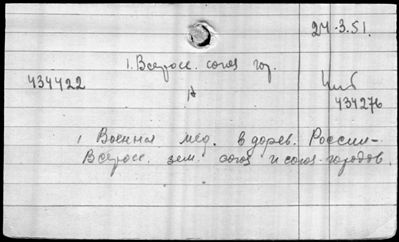 24.3.51.
1. Всеросс. союз гор.
434422
434276
1 Военная мед. в дорев. России-
Всеросс. зем. союз и союз городов.